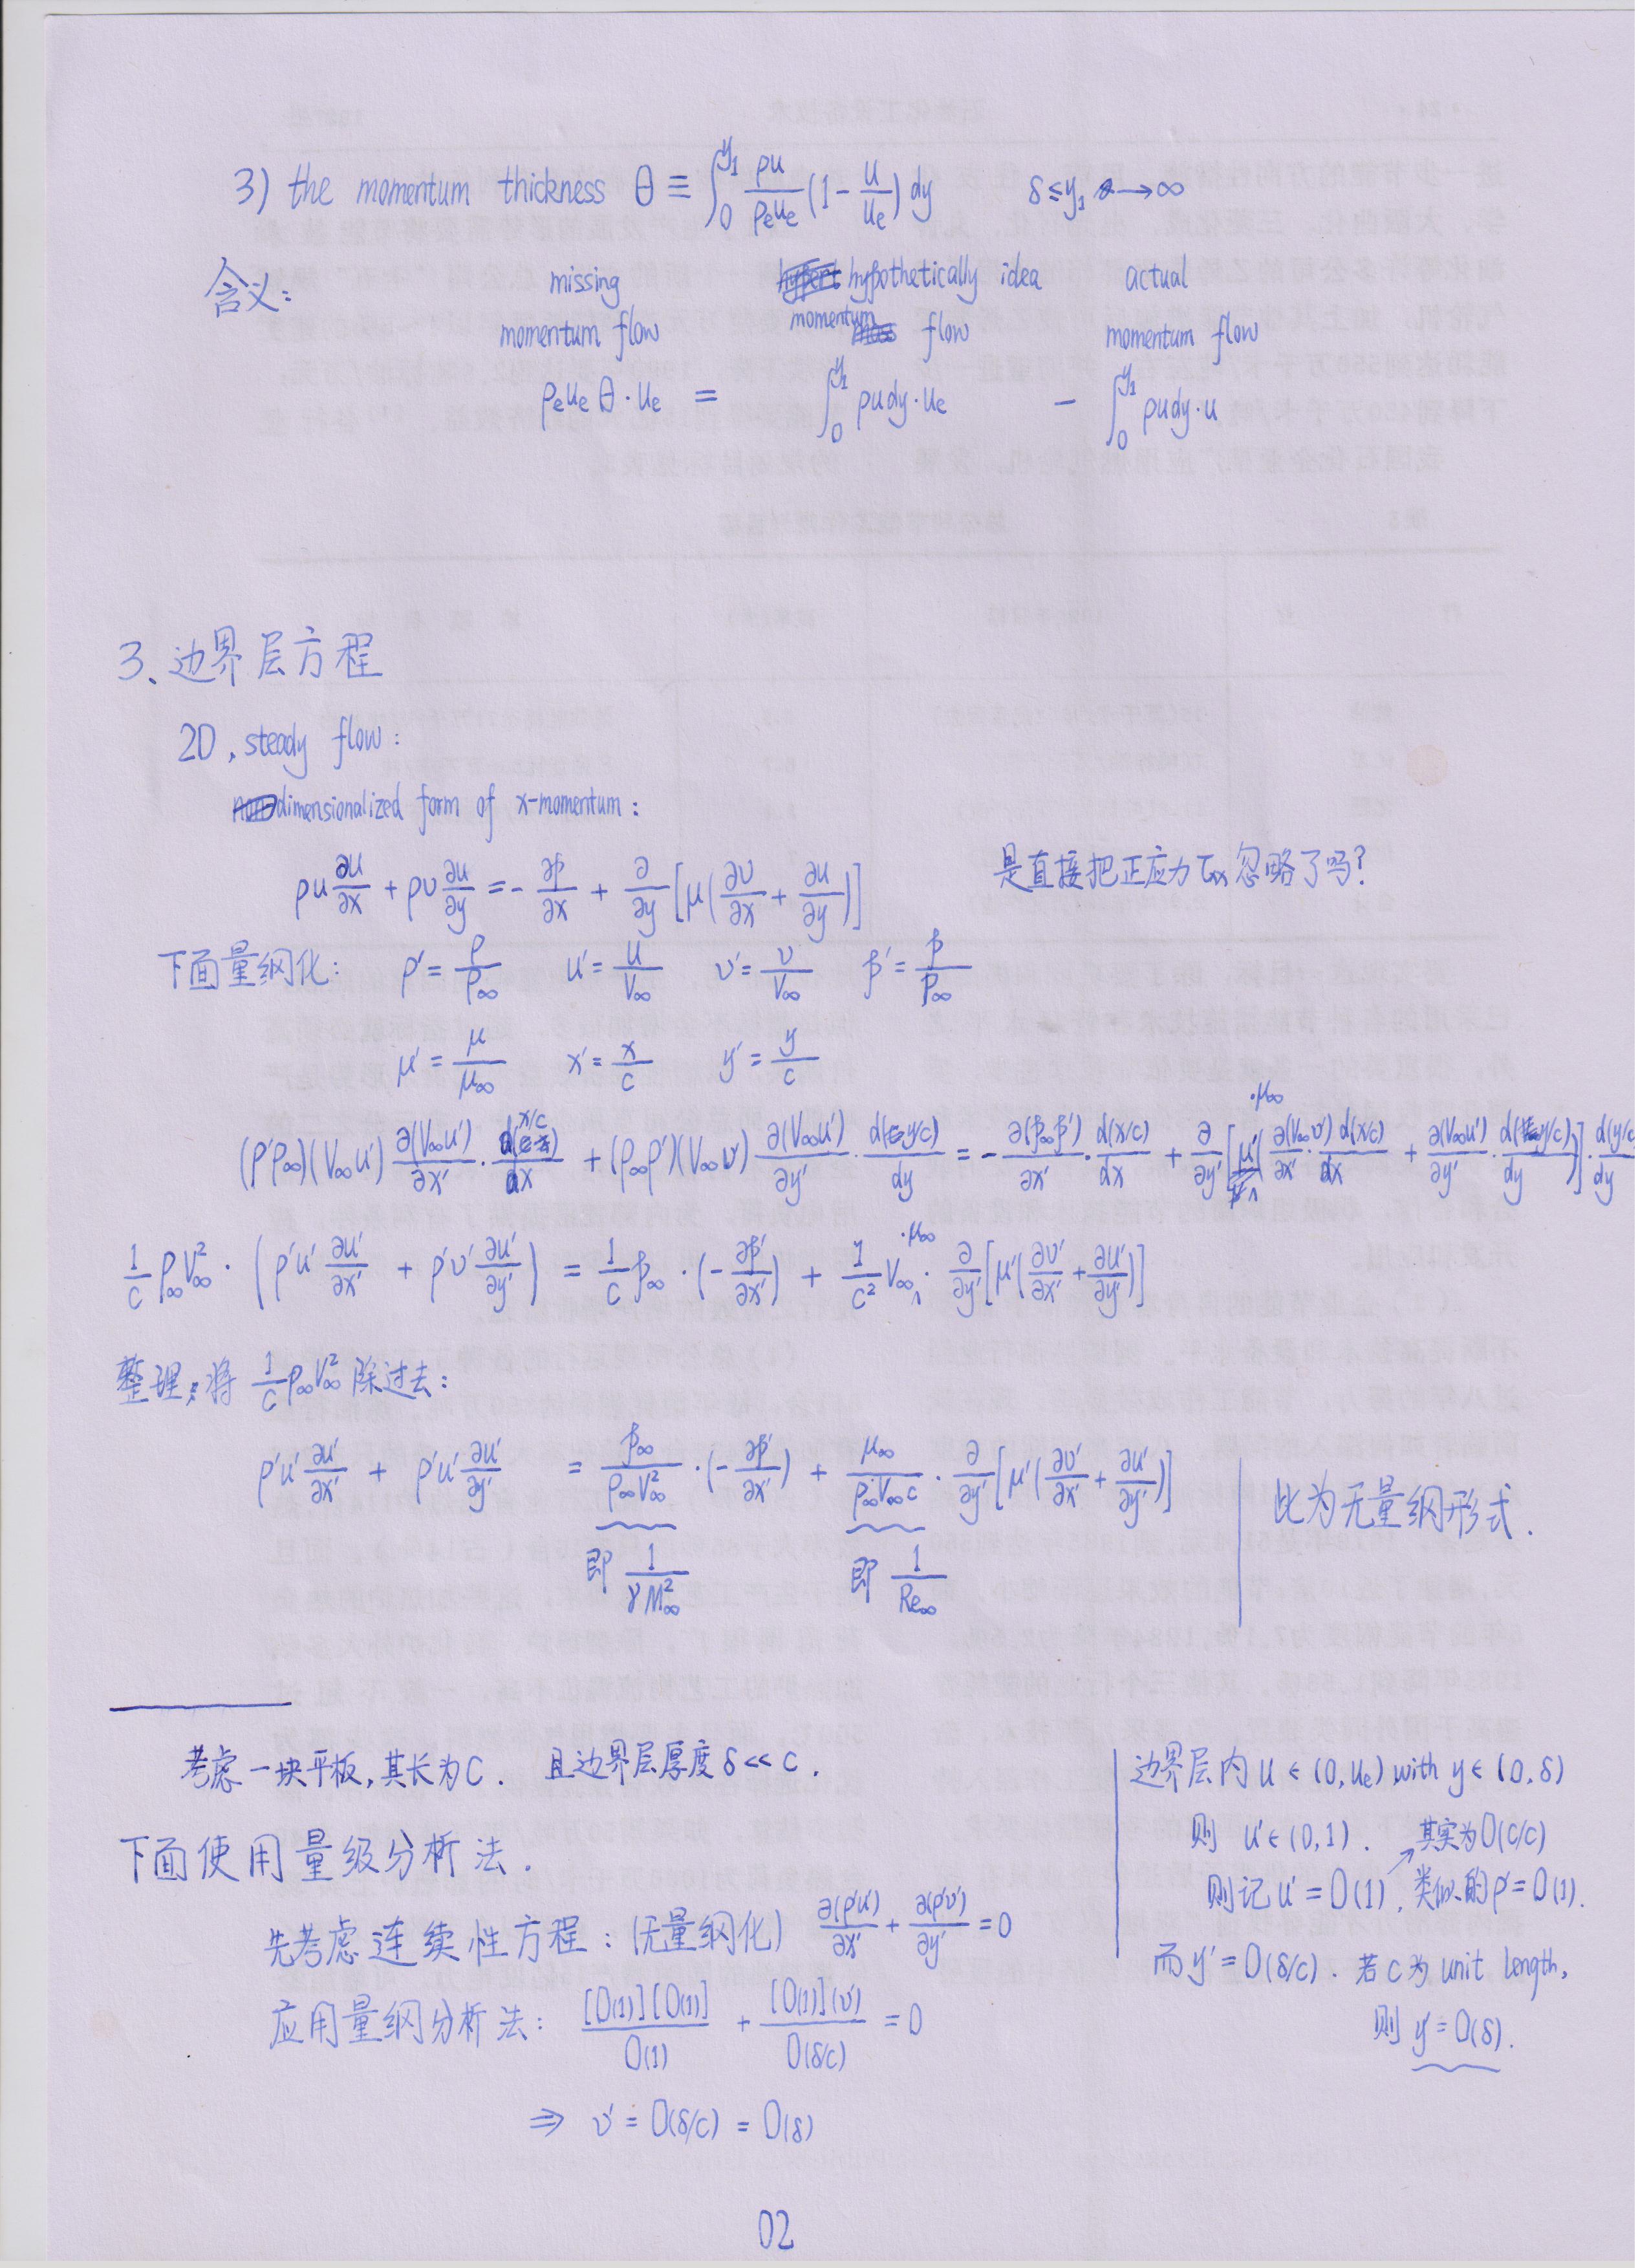 3) the momentum thickness θ ≡ ∫₀^{y₁} ρu/(ρₑuₑ) (1 - u/uₑ) dy    δ ≤ y₁ → ∞
含义: missing    hypothetically idea    actual
momentum flow    momentum flow    momentum flow
ρₑuₑθ·uₑ = ∫₀^{y₁} ρudy·uₑ - ∫₀^{y₁} ρudy·u
3、边界层方程
2D, steady flow:
dimensionalized form of x-momentum:
ρu ∂u/∂x + ρv ∂u/∂y = - ∂p/∂x + ∂/∂y [μ(∂v/∂x + ∂u/∂y)]    是直接把正应力τxx忽略了吗?
下面量纲化:    ρ' = ρ/ρ∞    u' = u/V∞    v' = v/V∞    p' = p/p∞
μ' = μ/μ∞    x' = x/c    y' = y/c
(ρ'ρ∞)(V∞u') ∂(V∞u')/∂x' · d(x/c)/dx + (ρ∞ρ')(V∞v') ∂(V∞u')/∂y' · d(y/c)/dy = - ∂(p∞p')/∂x' · d(x/c)/dx + ∂/∂y' [μ'·μ∞(∂(V∞v')/∂x' · d(x/c)/dx + ∂(V∞u')/∂y' · d(y/c)/dy)] · d(y/c)/dy
1/c ρ∞V∞² · (ρ'u' ∂u'/∂x' + ρ'v' ∂u'/∂y') = 1/c p∞ · (-∂p'/∂x') + 1/c² V∞·μ∞ · ∂/∂y' [μ'(∂v'/∂x' + ∂u'/∂y')]
整理: 将 1/c ρ∞V∞² 除过去:
ρ'u' ∂u'/∂x' + ρ'u' ∂u'/∂y' = p∞/(ρ∞V∞²) · (-∂p'/∂x') + μ∞/(ρ∞V∞c) · ∂/∂y' [μ'(∂v'/∂x' + ∂u'/∂y')]    比为无量纲形式.
即 1/(γM∞²)    即 1/Re∞
考虑一块平板, 其长为C. 且边界层厚度 δ << c.
下面使用量级分析法.
先考虑连续性方程: (无量纲化) ∂(ρ'u')/∂x' + ∂(ρ'v')/∂y' = 0
应用量纲分析法: [O(1)][O(1)]/O(1) + [O(1)](v')/O(δ/c) = 0
⇒ v' = O(δ/c) = O(δ)
边界层内 u ∈ (0, uₑ) with y ∈ (0, δ)
则 u' ∈ (0, 1). 其实为O(c/c)
则记 u' = O(1), 类似的 ρ' = O(1).
而 y' = O(δ/c). 若 c 为 unit length,
则 y' = O(δ).
02